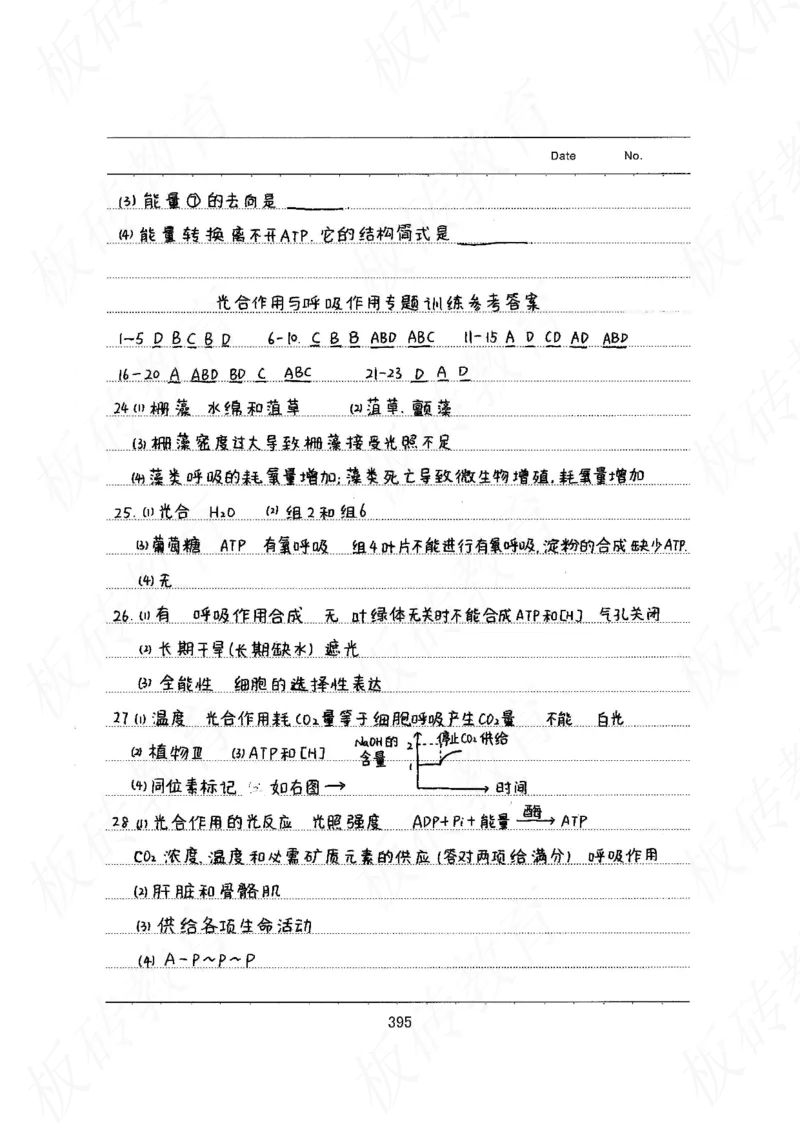 Date No.
(3) 能量①的去向是 ______.
(4) 能量转换离不开ATP.它的结构简式是 ______
光合作用与呼吸作用专题训练参考答案
1-5 D B C B D 6-10. C B B ABD ABC 11-15 A D CD AD ABD
16-20 A ABD BD C ABC 21-23 D A D
24 (1) 栅藻 水绵和菹草 (2) 菹草.颤藻
(3) 栅藻密度过大导致栅藻接受光照不足
(4) 藻类呼吸的耗氧量增加;藻类死亡导致微生物增殖,耗氧量增加
25. (1) 光合 H₂O (2) 组2和组6
(3) 葡萄糖 ATP 有氧呼吸 组4叶片不能进行有氧呼吸,淀粉的合成缺少ATP.
(4) 无
26. (1) 有 呼吸作用合成 无 叶绿体无关时不能合成ATP和[H] 气孔关闭
(2) 长期干旱(长期缺水) 遮光
(3) 全能性 细胞的选择性表达
27 (1) 温度 光合作用耗CO₂量等于细胞呼吸产生CO₂量 不能 白光
(2) 植物Ⅲ (3) ATP和[H] NaOH的含量 2 1 停止CO₂供给 时间
(4) 同位素标记 如右图→
28 (1) 光合作用的光反应 光照强度 ADP+Pi+能量 酶→ ATP
CO₂浓度.温度和必需矿质元素的供应(答对两项给满分) 呼吸作用
(2) 肝脏和骨骼肌
(3) 供给各项生命活动
(4) A-P~P~P
395
板砖教育